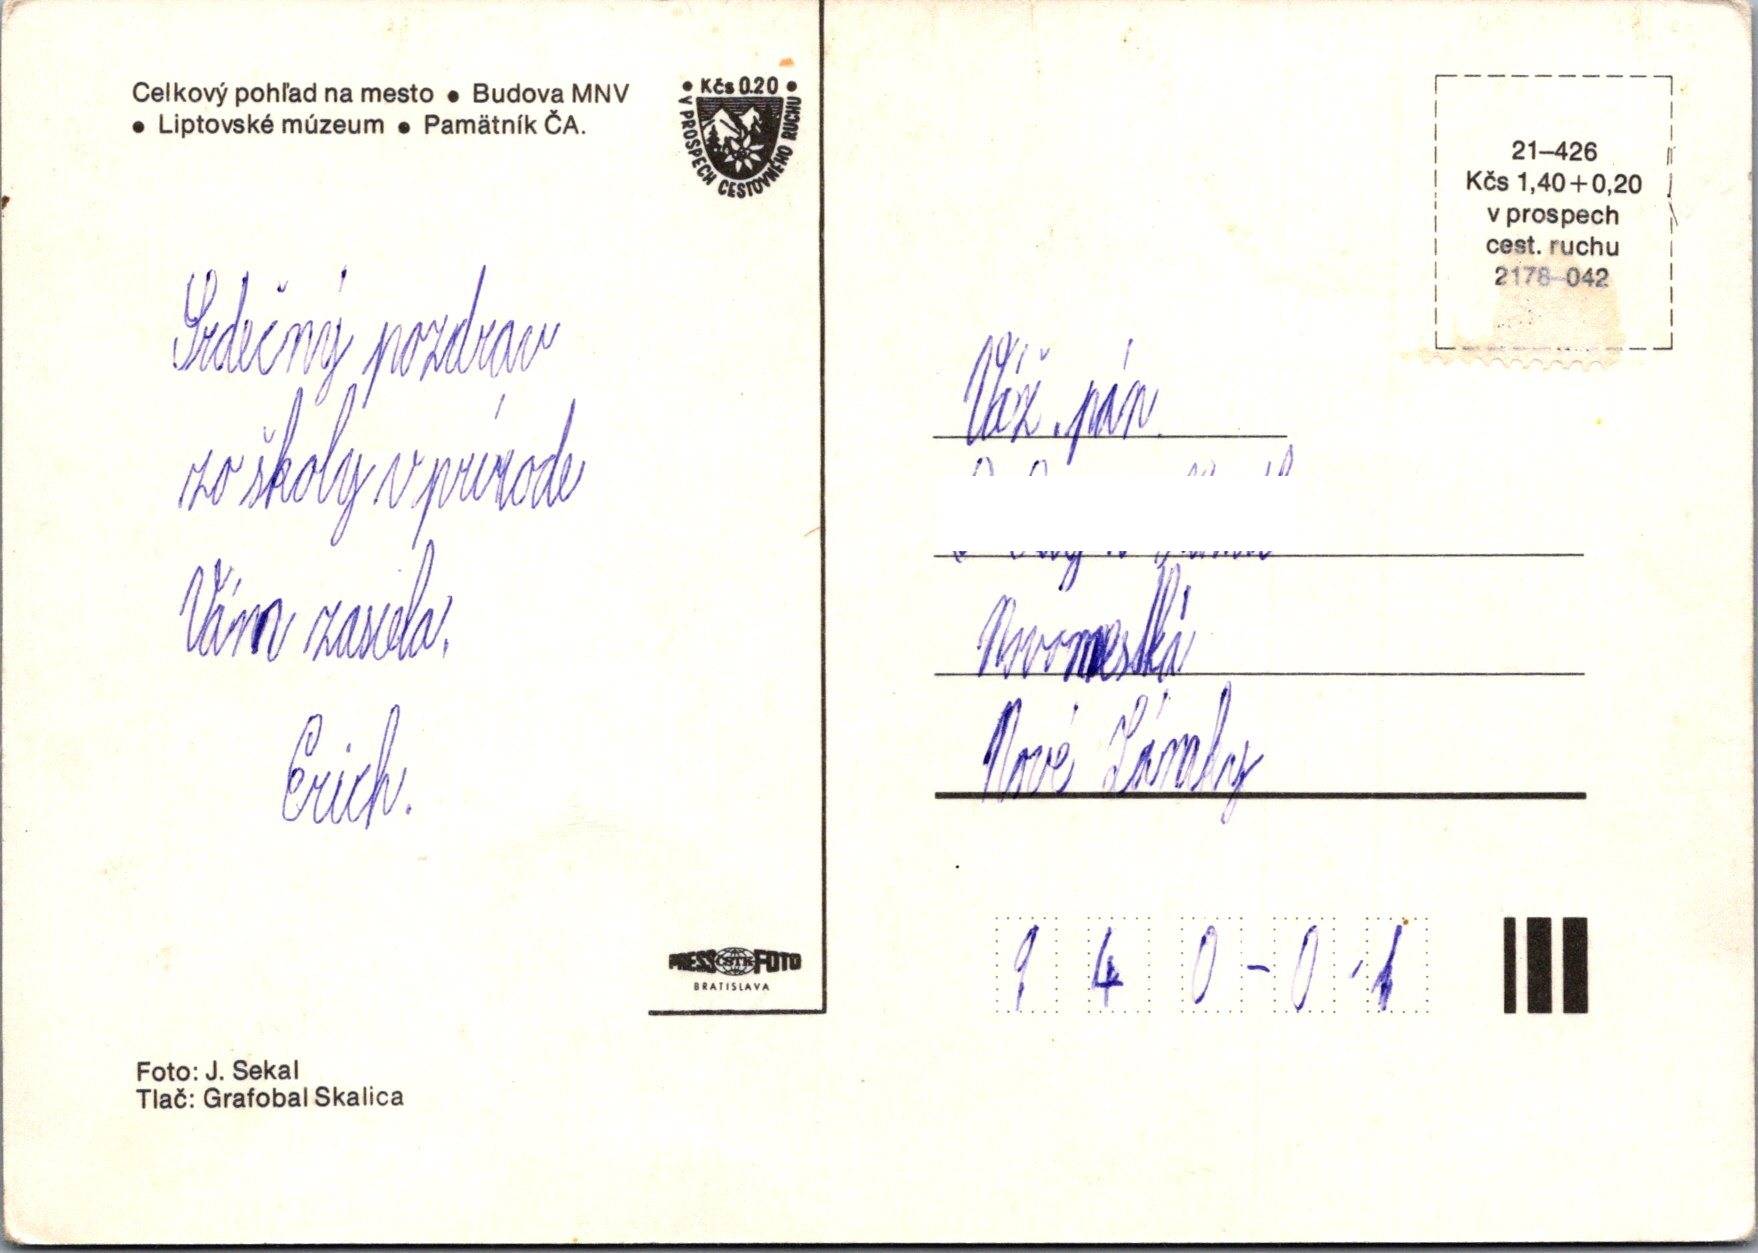 Celkový pohľad na mesto ● Budova MNV
● Liptovské múzeum ● Pamätník ČA.
● Kčs 0.20 ●
V PROSPECH CESTOVNÉHO RUCHU
Srdečný pozdrav
zo školy v prírode
Vám zasiela.
Erich.
PRESS ČSTK FOTO
BRATISLAVA
Foto: J. Sekal
Tlač: Grafobal Skalica
21–426
Kčs 1,40+0,20
v prospech
cest. ruchu
2178–042
Váž. pán
Novomeská
Nové Zámky
940-01